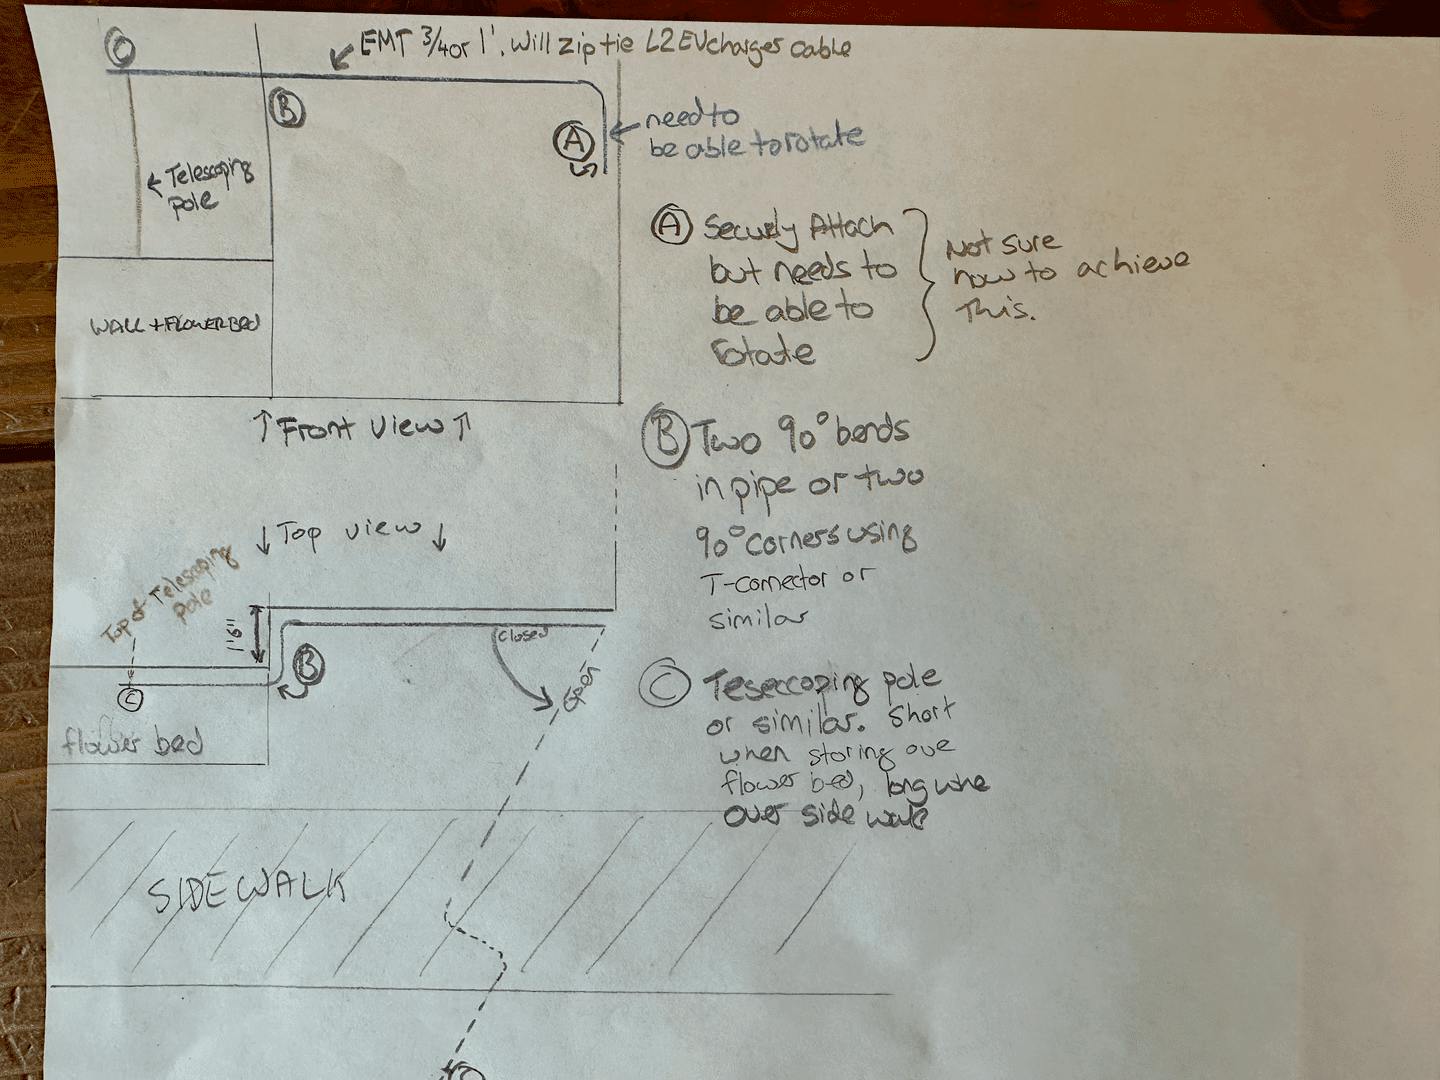 C
EMT 3/4 or 1'. Will zip tie L2 EV chargers cable
B
A
need to
be able to rotate
← Telescoping
pole
A Securely Attach
but needs to
be able to
rotate
Not sure
how to achieve
This.
WALL + FLOWER BED
↑ Front View ↑
B Two 90° bends
in pipe or two
90° corners using
T-connector or
similar
↓ Top view ↓
Top of Telescoping
pole
1'6"
Closed
B
Open
C
flower bed
C
pole
or similar. Short
when storing ove
flower bed, long
over side walk
SIDEWALK